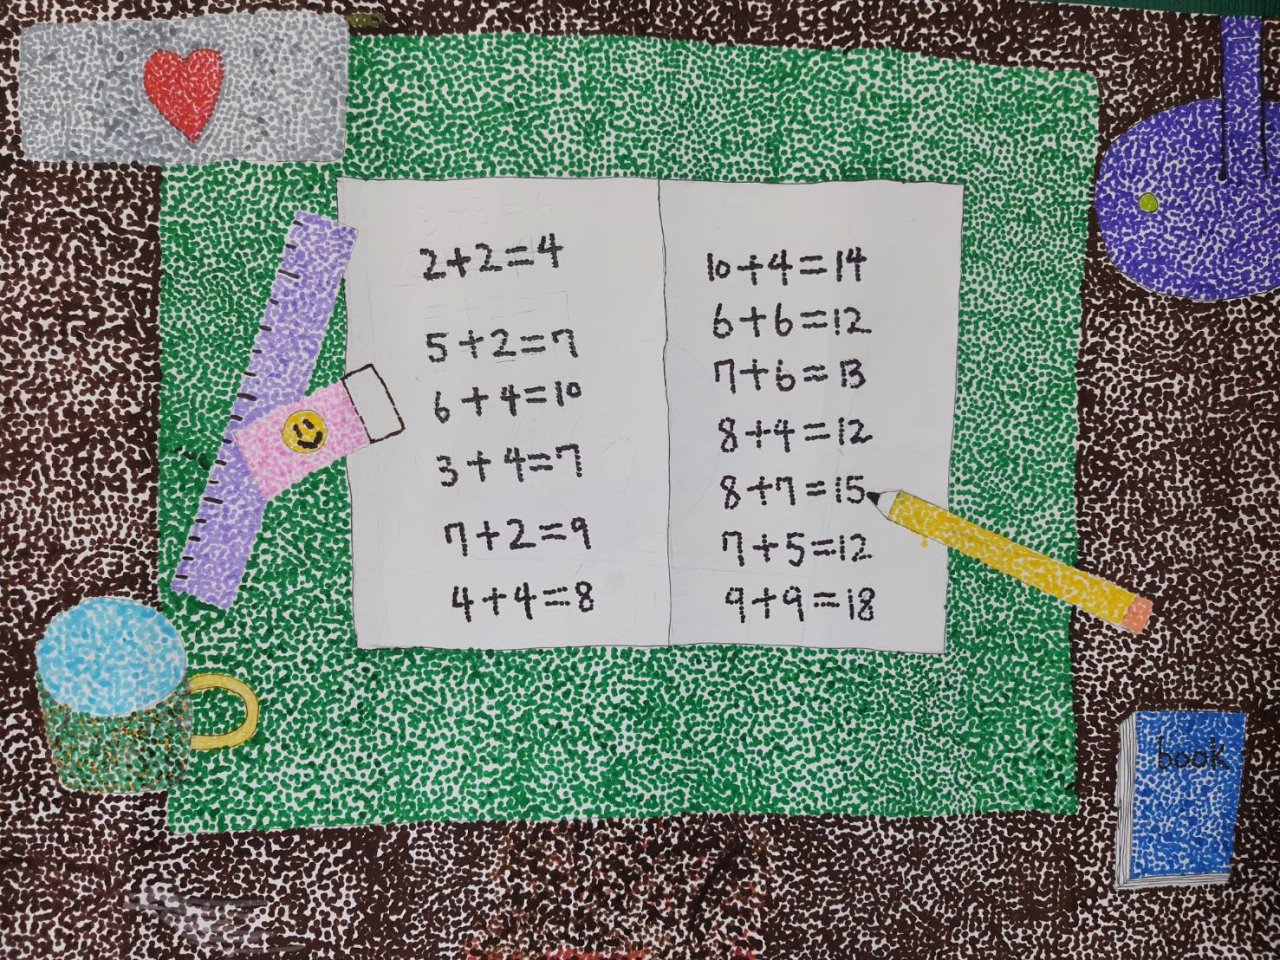 2+2=4
5+2=7
6+4=10
3+4=7
7+2=9
4+4=8
10+4=14
6+6=12
7+6=13
8+4=12
8+7=15
7+5=12
9+9=18
book